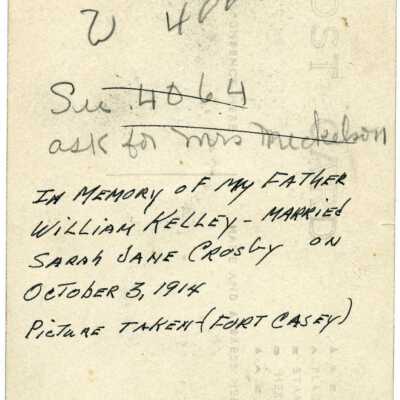 W 400
Su. 4064
ask for Mrs Mickelson
IN MEMORY OF MY FATHER
WILLIAM KELLEY - MARRIED
SARAH JANE CROSBY ON
OCTOBER 3, 1914
PICTURE TAKEN - (FORT CASEY)
POST CARD